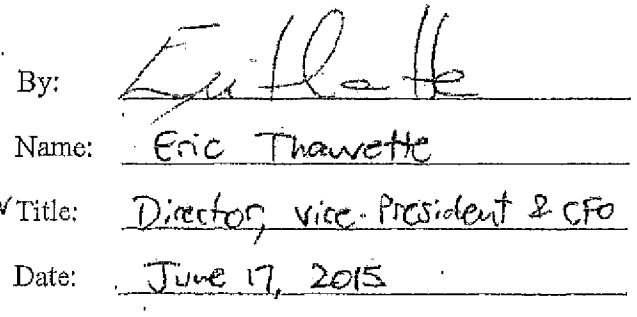 By:
Name: Eric Thawette
Title: Director, vice-President & CFO
Date: June 17, 2015